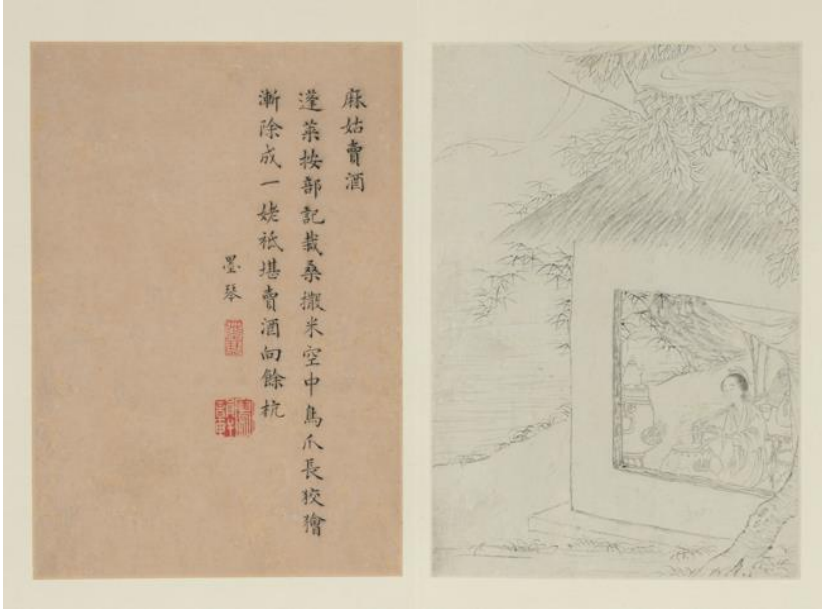 麻姑賣酒
蓬萊按部記栽桑擲米空中鳥爪長狡獪
漸除成一姥祇堪賣酒向餘杭
墨琴